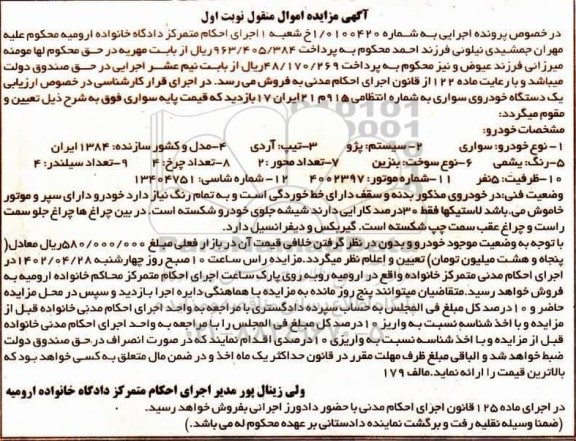 آگهی مزایده اموال منقول نوبت اول
در خصوص پرونده اجرایی به شماره ۰۱۰۰۴۲۰/اخ شعبه ۱ اجرای احکام متمرکز دادگاه خانواده ارومیه محکوم علیه
مهران جمشیدی نیلوئی فرزند احمد محکوم به پرداخت ۹۶۳/۴۰۵/۳۸۴ریال از بابت مهریه در حق محکوم لها مومنه
میرزائی فرزند عیوض و نیز محکوم به پرداخت ۴۸/۱۷۰/۲۶۹ریال از بابت نیم عشر اجرایی در حق صندوق دولت
میباشد و با رعایت ماده ۱۲۲ از قانون اجرای احکام مدنی به فروش می رسد. در اجرای قرار کارشناسی در خصوص ارزیابی
یک دستگاه خودروی سواری به شماره انتظامی ۹۱۵م۲۱ ایران ۱۷بازدید که قیمت پایه سواری فوق به شرح ذیل تعیین و
مقوم میگردد:
مشخصات خودرو:
۱-نوع خودرو: سواری ۲-سیستم: پژو ۳-تیپ: آردی ۴-مدل و کشور سازنده: ۱۳۸۴ایران
۵-رنگ: یشمی ۶-نوع سوخت: بنزین ۷-تعداد محور: ۲ ۸-تعداد چرخ: ۴ ۹-تعداد سیلندر: ۴
۱۰-ظرفیت: ۵نفر ۱۱-شماره موتور: ۴۰۰۲۳۹۷ ۱۲-شماره شاسی: ۱۳۴۰۴۷۵۱
وضعیت فنی: در خودروی مذکور بدنه و سقف دارای خط خوردگی است و به تمام رنگ نیاز دارد خودرو دارای سپر و موتور
خاموش می.باشد لاستیکها فقط ۳۰درصد کارایی دارند شیشه جلوی خودرو شکسته است. در بین چراغ ها چراغ جلو سمت
راست و چراغ عقب سمت چپ شکسته است. گیربکس و دیفرانسیل دارد.
با توجه به وضعیت موجود خودرو و بدون در نظر گرفتن خلافی قیمت آن در بازار فعلی مبلغ ۵۸۰/۰۰۰/۰۰۰ریال معادل(
پنجاه و هشت میلیون تومان) تعیین و اعلام نظر میگردد. مزایده راس ساعت ۱۰ صبح روز چهارشنبه ۱۴۰۲/۰۴/۲۸در
اجرای احکام مدنی متمرکز خانواده واقع در ارومیه روبه روی پارک ساعت اجرای احکام متمرکز محاکم خانواده ارومیه به
فروش خواهد رسید. متقاضیان میتوانند پنج روز مانده به مزایده با هماهنگی دایره اجرا بازدید و سپس در محل مزایده
حاضر و ۱۰درصد کل مبلغ فی المجلس به حساب سپرده دادگستری با مراجعه به واحد اجرای احکام مدنی خانواده قبل از
مزایده و با اخذ شناسه نسبت به واریز ۱۰درصد کل مبلغ فی المجلس را با مراجعه به واحد اجرای احکام مدنی خانواده
قبل از مزایده و با اخذ شناسه نسبت به واریزی ۱۰درصد اقدام نمایند که در صورت انصراف در حق صندوق دولت
ضبط خواهد شد و الباقی مبلغ ظرف مهلت مقرر در قانون حداکثر یک ماه اخذ و در ضمن مال متعلق به کسی خواهد بود که
بالاترین قیمت را ارائه نماید. مالف ۱۷۹
ولی زینال پور مدیر اجرای احکام متمرکز دادگاه خانواده ارومیه
در اجرای ماده ۱۲۵قانون اجرای احکام مدنی با حضور دادورز اجرائی بفروش خواهد رسید.
(ضمنا وسیله نقلیه رفت و برگشت نماینده دادستانی بر عهده محکوم له می باشد.)